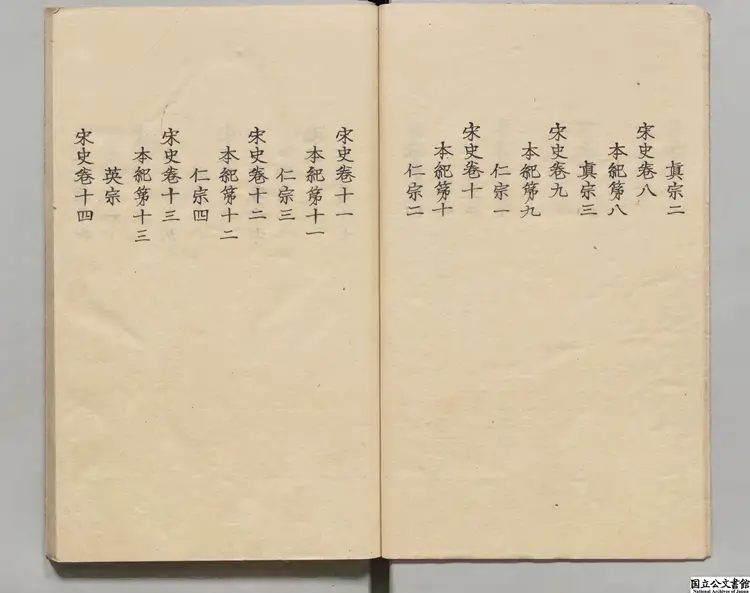 真宗二
宋史卷八
本紀第八
真宗三
宋史卷九
本紀第九
仁宗一
宋史卷十
本紀第十
仁宗二
宋史卷十一
本紀第十一
仁宗三
宋史卷十二
本紀第十二
仁宗四
宋史卷十三
本紀第十三
英宗
宋史卷十四
国立公文書館
National Archives of Japan